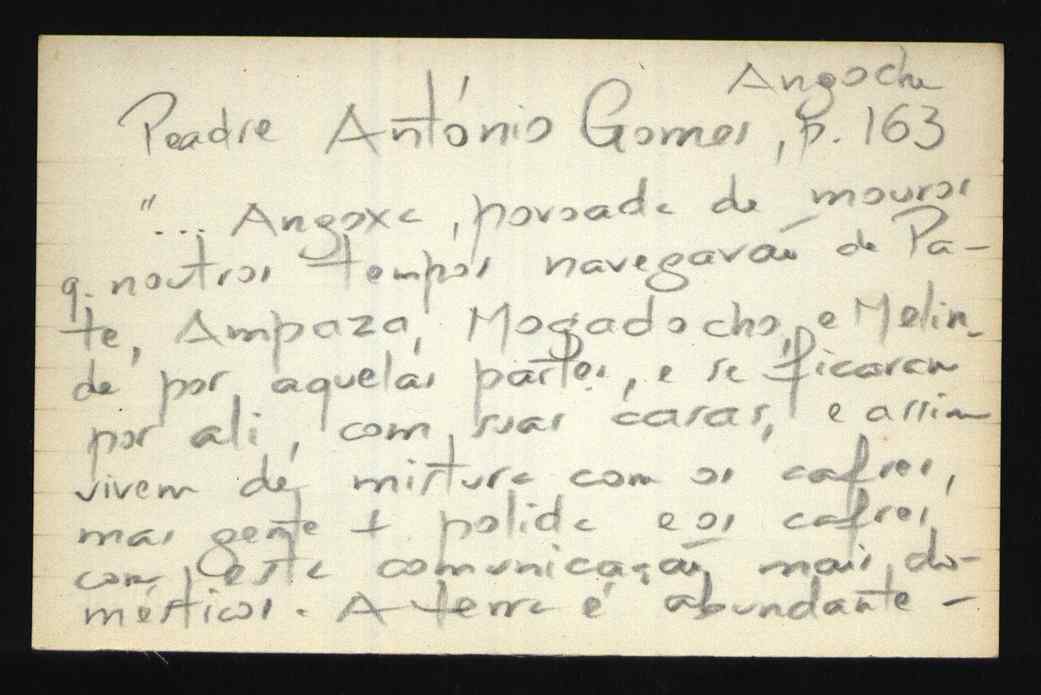 Angoche
Peadre António Gomes, p. 163
"... Angoxe, povoada de mouros
q. noutros tempos navegavaõ de Pa-
te, Ampaza, Mogadocho, e Melin-
de por aquelas partes, e se ficaram
por ali, com suas casas, e assim
vivem de mistura com os cafres,
mas gente + polida e os cafres
com esta comunicaçaõ mais do-
mésticos. A terra é abundante -